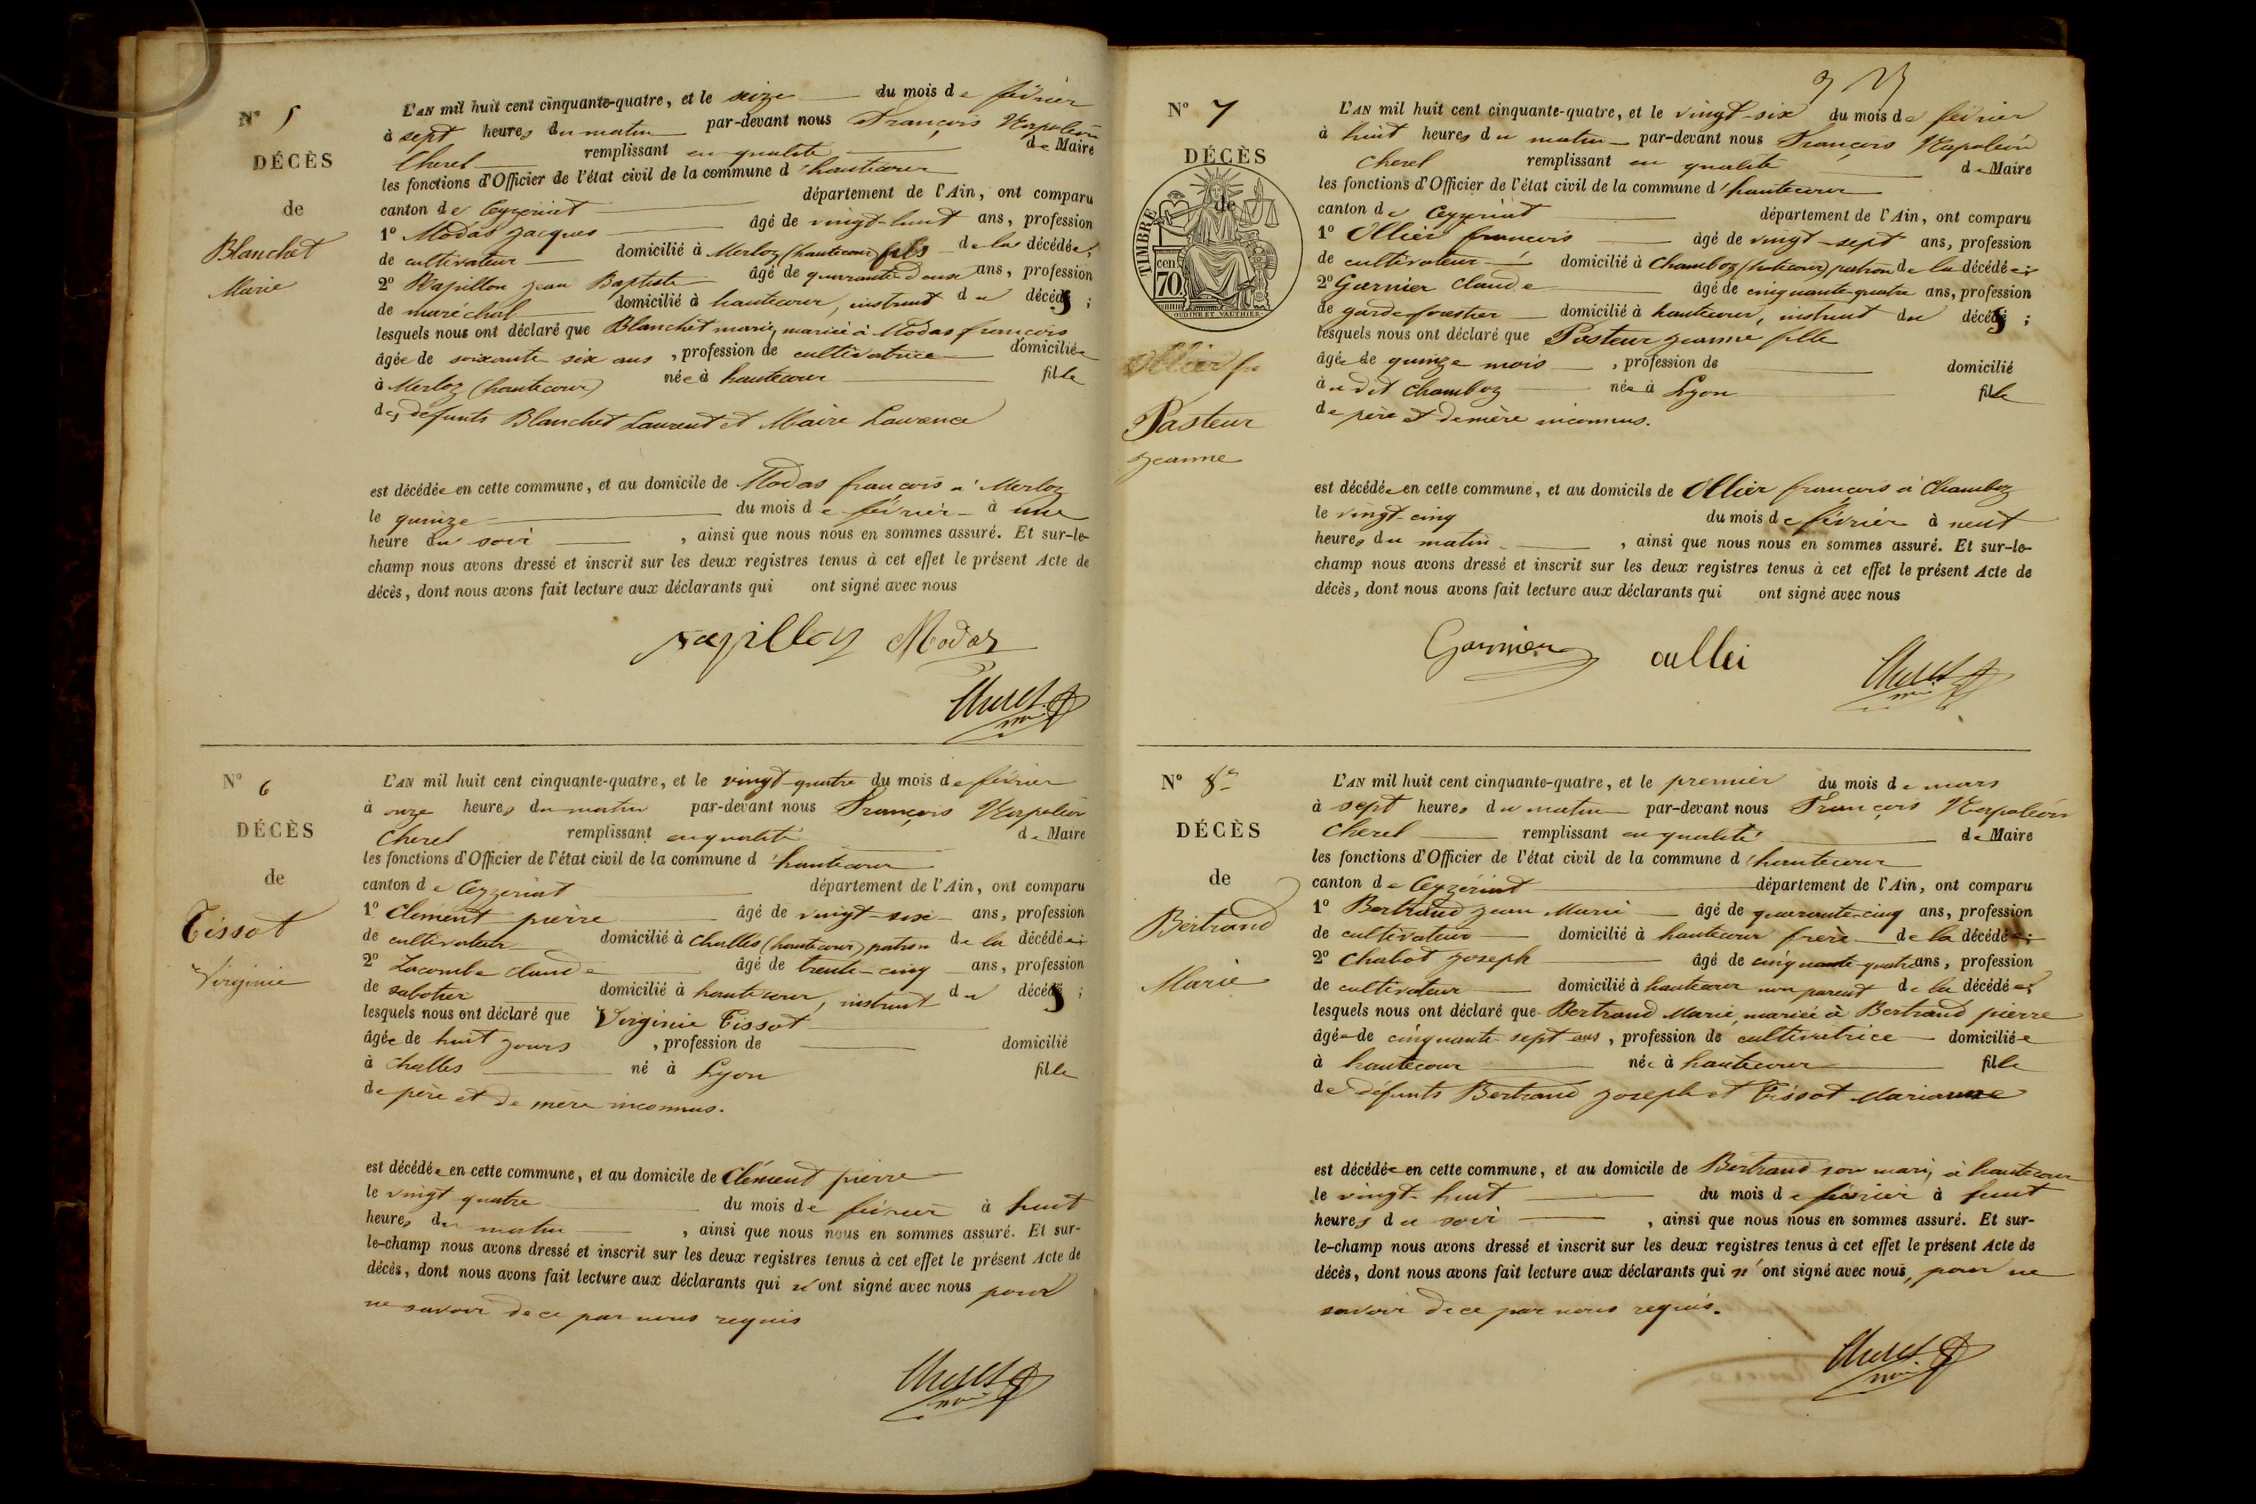 N° 5
DÉCÈS
de
Blanchet
Marie
L'AN mil huit cent cinquante-quatre, et le seize du mois de février
à sept heures du matin par-devant nous François Napoléon
Cherel remplissant en qualité de Maire
les fonctions d'Officier de l'état civil de la commune d'hautecour
canton de Ceyzeriat département de l'Ain, ont comparu
1° Modas Jacques âgé de vingt-huit ans, profession
de cultivateur domicilié à Merloz (hautecour) fils de la décédée;
2° Papillon Jean Baptiste âgé de quarante deux ans, profession
de maréchal domicilié à hautecour, instruit du décés;
lesquels nous ont déclaré que Blanchet marie, mariée à Modas françois
âgée de soixante six ans, profession de cultivatrice domiciliée
à Merloz (hautecour) née à hautecour fille
des défunts Blanchet Laurent et Maire Laurence
est décédée en cette commune, et au domicile de Modas françois à Merloz
le quinze du mois de février à une
heure du soir, ainsi que nous nous en sommes assuré. Et sur-le-
champ nous avons dressé et inscrit sur les deux registres tenus à cet effet le présent Acte de
décès, dont nous avons fait lecture aux déclarants qui ont signé avec nous
papillon Modas
Cherel
N° 6
DÉCÈS
de
Tissot
Virginie
L'AN mil huit cent cinquante-quatre, et le vingt-quatre du mois de février
à onze heures du matin par-devant nous François Napoléon
Cherel remplissant en qualité de Maire
les fonctions d'Officier de l'état civil de la commune d'hautecour
canton de Ceyzeriat département de l'Ain, ont comparu
1° Clément pierre âgé de vingt-six ans, profession
de cultivateur domicilié à Challes (hautecour) patron de la décédée;
2° Lacombe claude âgé de trente-cinq ans, profession
de sabotier domicilié à hautecour, instruit du décés;
lesquels nous ont déclaré que Virginie Tissot
âgée de huit jours, profession de domicilié
à Challes né à Lyon fille
de père et de mère inconnus.
est décédée en cette commune, et au domicile de Clément pierre
le vingt quatre du mois de février à huit
heures du matin, ainsi que nous nous en sommes assuré. Et sur-
le-champ nous avons dressé et inscrit sur les deux registres tenus à cet effet le présent Acte de
décès, dont nous avons fait lecture aux déclarants qui n'ont signé avec nous pour
ne savoir de ce par nous requis
Cherel
N° 7
DÉCÈS
de
TIMBRE
cen
70
OUDINÉ ET VAUTHIER
Ollier fr
Pasteur
Jeanne
L'AN mil huit cent cinquante-quatre, et le vingt-six du mois de février
à huit heures du matin par-devant nous François Napoléon
Cherel remplissant en qualité de Maire
les fonctions d'Officier de l'état civil de la commune d'hautecour
canton de Ceyzériat département de l'Ain, ont comparu
1° Ollier françois âgé de vingt-sept ans, profession
de cultivateur domicilié à Chamboz (hutecour) patron de la décédée;
2° Garnier Claude âgé de cinquante quatre ans, profession
de garde forestier domicilié à hautecour, instruit du décés;
lesquels nous ont déclaré que Pasteur Jeanne fille
âgée de quinze mois, profession de domicilié
à u dit Chamboz née à Lyon fille
de père et de mère inconnus.
est décédée en cette commune, et au domicile de Ollier françois à Chamboz
le vingt-cinq du mois de février à neuf
heures du matin, ainsi que nous nous en sommes assuré. Et sur-le-
champ nous avons dressé et inscrit sur les deux registres tenus à cet effet le présent Acte de
décès, dont nous avons fait lecture aux déclarants qui ont signé avec nous
Garnier oullei
Cherel
N° 8
DÉCÈS
de
Bertrand
Marie
L'AN mil huit cent cinquante-quatre, et le premier du mois de mars
à sept heures du matin par-devant nous François Napoléon
Cherel remplissant en qualité de Maire
les fonctions d'Officier de l'état civil de la commune d'hautecour
canton de Ceyzériat département de l'Ain, ont comparu
1° Bertrand Jean Marie âgé de quarante-cinq ans, profession
de cultivateur domicilié à hautecour frère de la décédée;
2° Chabot Joseph âgé de cinquante-quatre ans, profession
de cultivateur domicilié à hautecour non parent de la décédée;
lesquels nous ont déclaré que Bertrand Marie, mariée à Bertrand pierre
âgée de cinquante sept ans, profession de cultivatrice domiciliée
à hautecour née à hautecour fille
de défunts Bertrand Joseph et Tissot Marianne
est décédée en cette commune, et au domicile de Bertrand son mari, à hautecour
le vingt-huit du mois de février à huit
heures du soir, ainsi que nous nous en sommes assuré. Et sur-
le-champ nous avons dressé et inscrit sur les deux registres tenus à cet effet le présent Acte de
décès, dont nous avons fait lecture aux déclarants qui n'ont signé avec nous, pour ne
savoir de ce par nous requis.
Cherel